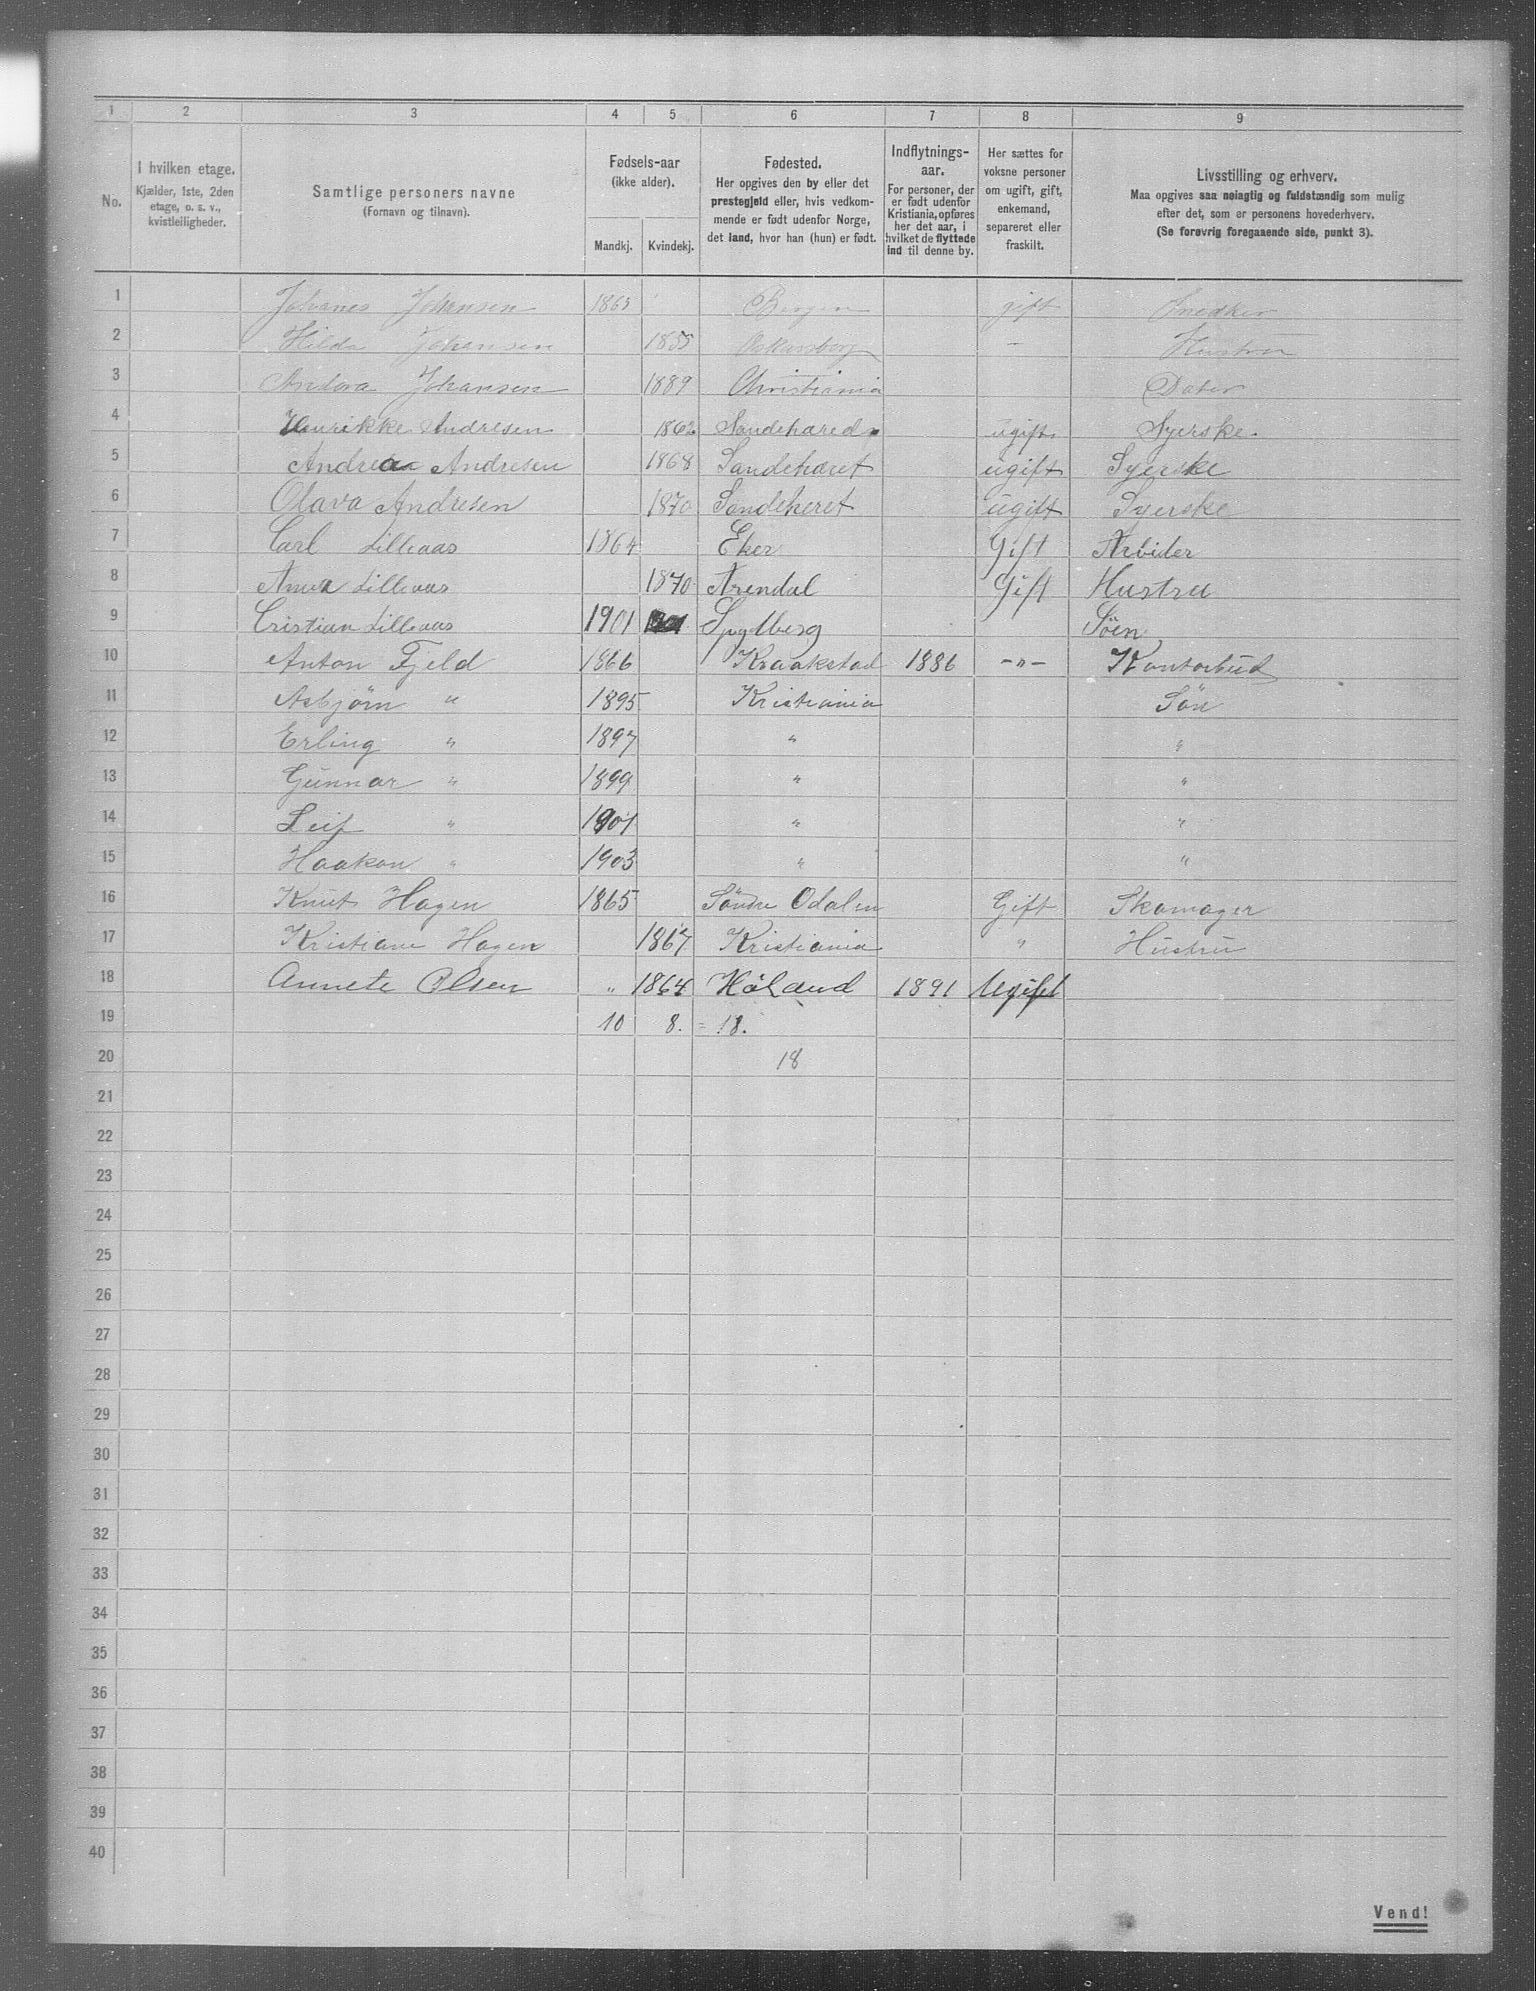 1 2 3 4 5 6 7 8 9
No. | I hvilken etage. Kjælder, 1ste, 2den etage, o. s. v., kvistleiligheder. | Samtlige personers navne (Fornavn og tilnavn). | Fødsels-aar (ikke alder). Mandkj. Kvindekj. | Fødested. Her opgives den by eller det prestegjeld eller, hvis vedkommende er født udenfor Norge, det land, hvor han (hun) er født. | Indflytnings-aar. For personer, der er født udenfor Kristiania, opføres her det aar, i hvilket de flyttede ind til denne by. | Her sættes for voksne personer om ugift, gift, enkemand, separeret eller fraskilt. | Livsstilling og erhverv. Maa opgives saa nøiagtig og fuldstændig som mulig efter det, som er personens hovederhverv. (Se forøvrig foregaaende side, punkt 3).
1 Johanes Johansen 1865 Bergen gift Snedker
2 Hilda Johansen 1855 Oskarsborg – Hustru
3 Andora Johansen 1889 Christiania Dater
4 Henrikke Andresen 1862 Sandehered ugift Syerske.
5 Andrea Andresen 1868 Sandeheret ugift Syerske
6 Olava Andresen 1870 Sandeheret ugift Syerske
7 Carl Lilleaas 1864 Eker Gift Arbider
8 Anna Lilleaas 1870 Arendal Gift Hustru
9 Cristian Lilleaas 1901 Spydberg Søen
10 Anton Fjeld 1866 Kraakstad 1886 –"– Kontorbud
11 Asbjørn " 1895 Kristiania Søn
12 Erling " 1897 " "
13 Gunnar " 1899 " "
14 Leif " 1901 " "
15 Haakon " 1903 " "
16 Knut Hagen 1865 Søndre Odalen Gift Skomager
17 Kristiane Hagen 1867 Kristiania " Hustru
18 Annete Olsen " 1864 Høland 1891 Ugift
19 10 8. = 18.
20 18
21
22
23
24
25
26
27
28
29
30
31
32
33
34
35
36
37
38
39
40
Vend!